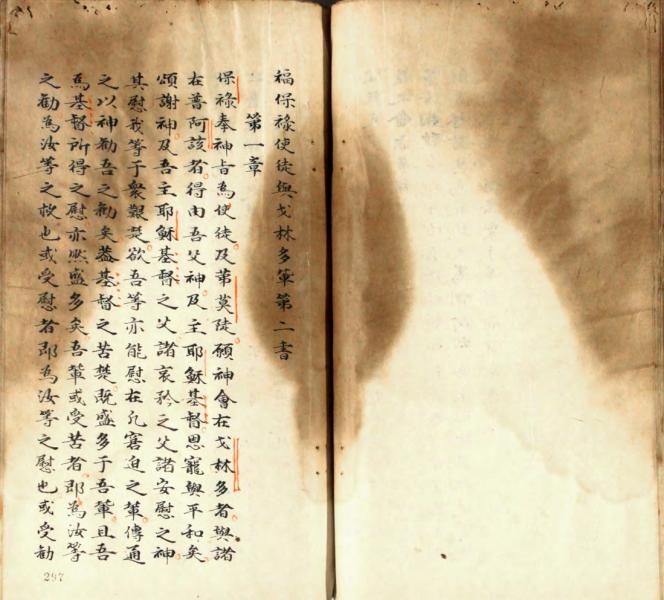 福保祿使徒與戈林多輩第二書
第一章
保祿奉神旨為使徒及第莫陡願神會在戈林多者與諸
在善阿該者得由吾父神及主耶穌基督恩寵與平和矣
頌謝神及吾主耶穌基督之父諸哀矜之父諸安慰之神
其慰我等于眾艱楚欲吾等亦能慰在凡窘迫之輩傳通
之以神勸吾之勸矣蓋基督之苦楚既盛多于吾輩且吾
為基督所得之慰亦然盛多矣吾輩或受苦者即為汝等
之勸為汝等之救也或受慰者即為汝等之慰也或受勸
297